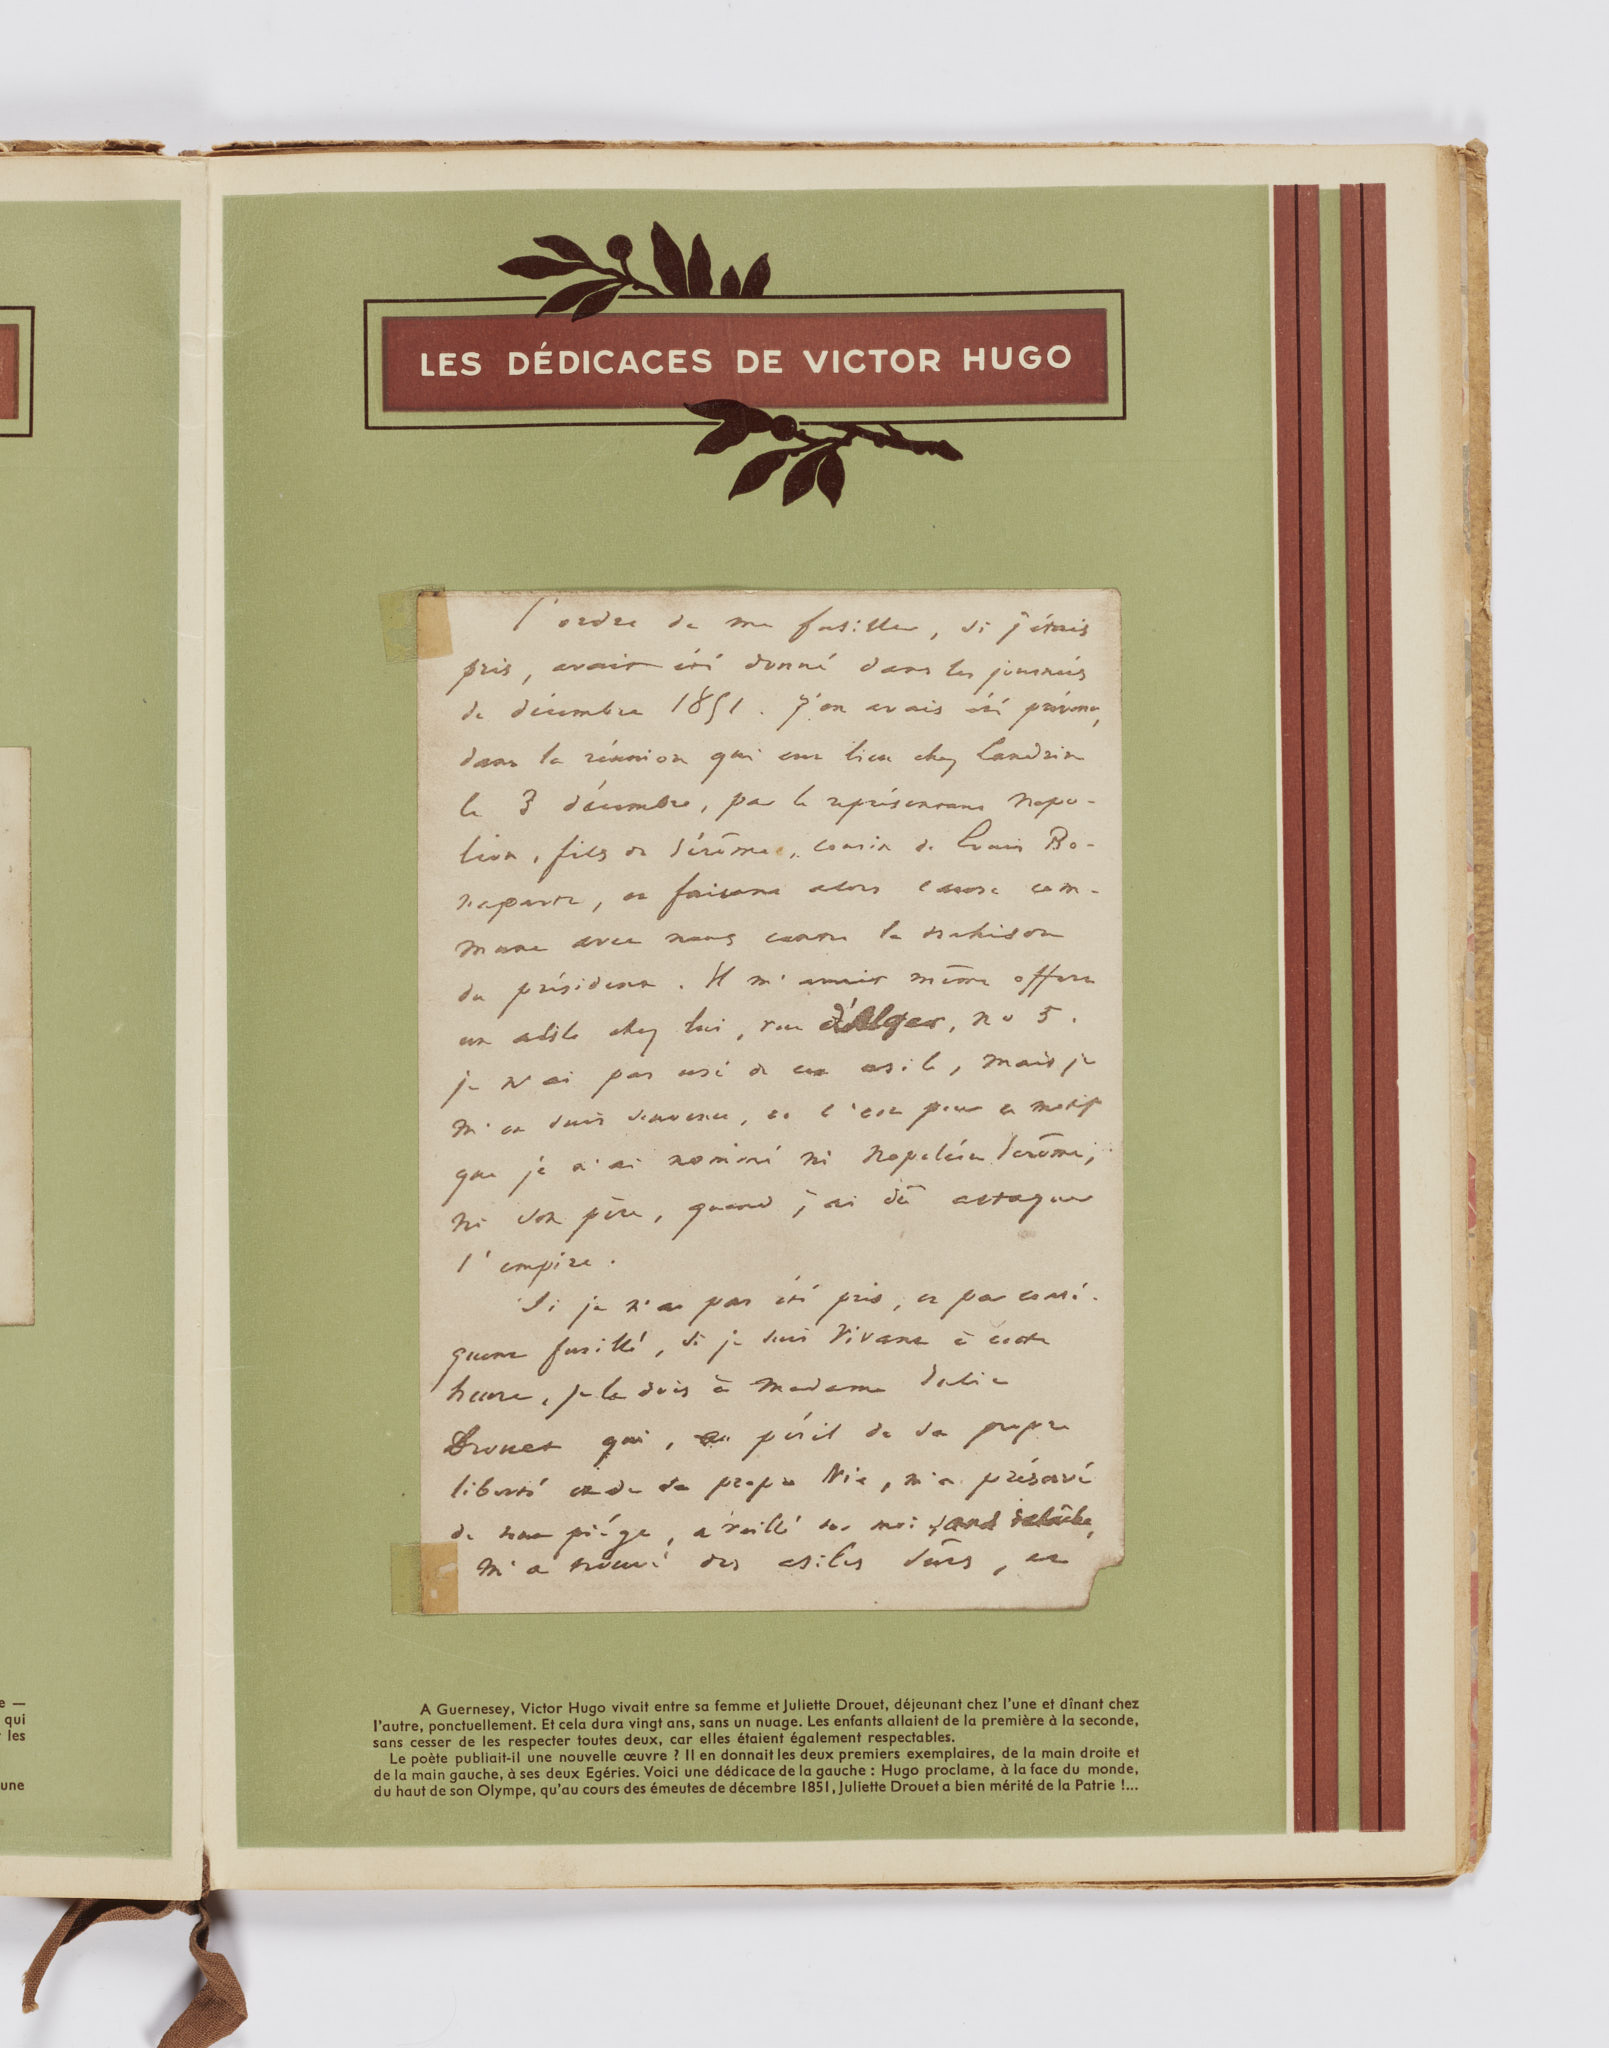 LES DÉDICACES DE VICTOR HUGO
l'ordre de me fusiller, si j'étais
pris, avait été donné dans les journées
de décembre 1851. J'en avais été prévenu,
dans la réunion qui eut lieu chez Landrin
le 3 décembre, par le représentant Napo-
léon, fils de Jérôme, cousin de Louis Bo-
naparte, et faisant alors cause com-
mune avec nous contre la trahison
du président. Il m'avait même offert
un asile chez lui, rue d'Alger, no 5.
je n'ai pas usé de cet asile, mais je
m'en suis souvenu, et c'est pour ce motif
que je n'ai nommé ni Napoléon Jérôme,
ni son père, quand j'ai dû attaquer
l'empire.
Si je n'ai pas été pris, et par consé-
quent fusillé, si je suis vivant à cette
heure, je le dois à Madame Julie
Drouet qui, au péril de sa propre
liberté et de sa propre vie, m'a préservé
de tout piége, a veillé sur moi sans relâche,
m'a trouvé des asiles sûrs, et
A Guernesey, Victor Hugo vivait entre sa femme et Juliette Drouet, déjeunant chez l'une et dînant chez
l'autre, ponctuellement. Et cela dura vingt ans, sans un nuage. Les enfants allaient de la première à la seconde,
sans cesser de les respecter toutes deux, car elles étaient également respectables.
Le poète publiait-il une nouvelle œuvre ? Il en donnait les deux premiers exemplaires, de la main droite et
de la main gauche, à ses deux Egéries. Voici une dédicace de la gauche : Hugo proclame, à la face du monde,
du haut de son Olympe, qu'au cours des émeutes de décembre 1851, Juliette Drouet a bien mérité de la Patrie !...
e —
qui
les
une